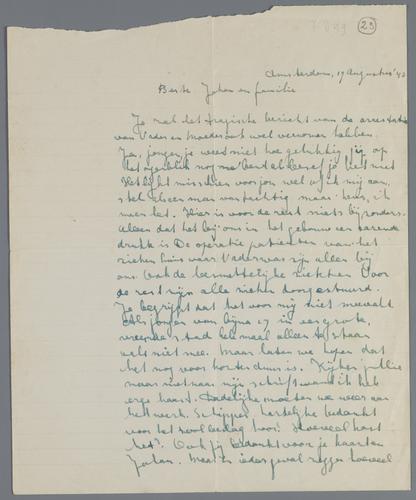 23
Amsterdam, 19 Augustus '42
Beste Johan en familie
Je zal het tragische bericht van de arrestatie
van Vader en Moeder ook wel vernomen hebben.
Ja, jongen je weet niet hoe gelukkig jij op
het ogenblik nog
Het lijkt misschien voor jou wel of ik mij aan
maar heus, ik
meen het. Hier is voor de rest niets bijzonders.
Alleen dat het bij ons in het gebouw een
drukte is De operatie patienten van het
zieken huis waar Vader was zijn allen bij
ons. Ook de besmettelijke ziekten. Voor
de rest zijn alle zieken doorgestuurd.
Je begrijpt dat het voor mij niet meevalt
Als jongen van bijna 17 in een grote,
vreemde stad helemaal alleen te staan
valt niet mee. Maar laten we hopen dat
het nog voor korte duur is. Kijken jullie
maar niet naar mijn schrift want ik heb
erge haast. Dadelijk moeten we weer aan
het werk. hartelijk bedankt
voor het Hoeveel kost
het? Ook jij bedankt voor je kaarten
Johan. in ieder geval zeggen hoeveel